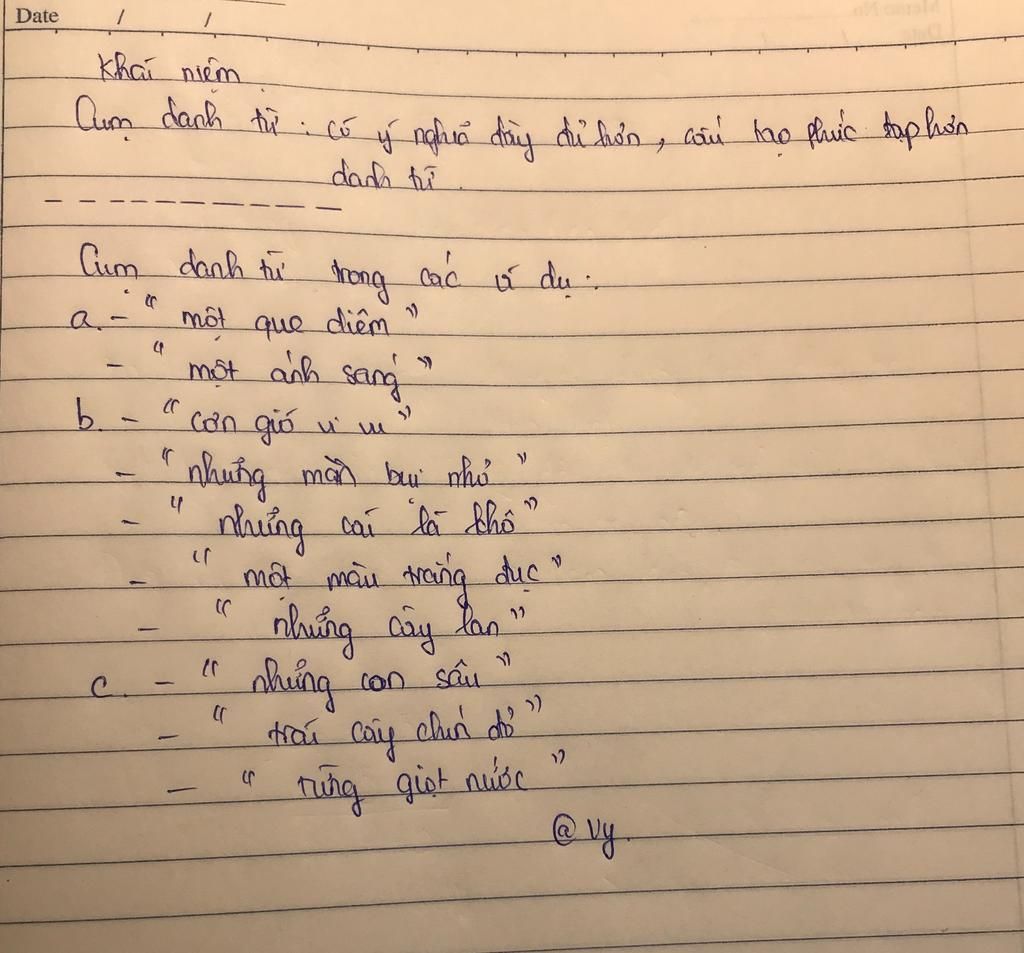 Date / /
Khái niệm
Cụm danh từ : có ý nghĩa đầy đủ hơn, cấu tạo phức tạp hơn
danh từ.
Cụm danh từ trong các ví dụ :
a. - " một que diêm "
- " một ánh sáng "
b. - " cơn gió vi vu "
- " những mần bụi nhỏ "
- " những cái lá khô "
- " một màu trắng đục "
- " những cây lan "
c. - " những con sâu "
- " trái cây chín đỏ "
- " từng giọt nước "
@ Vy.